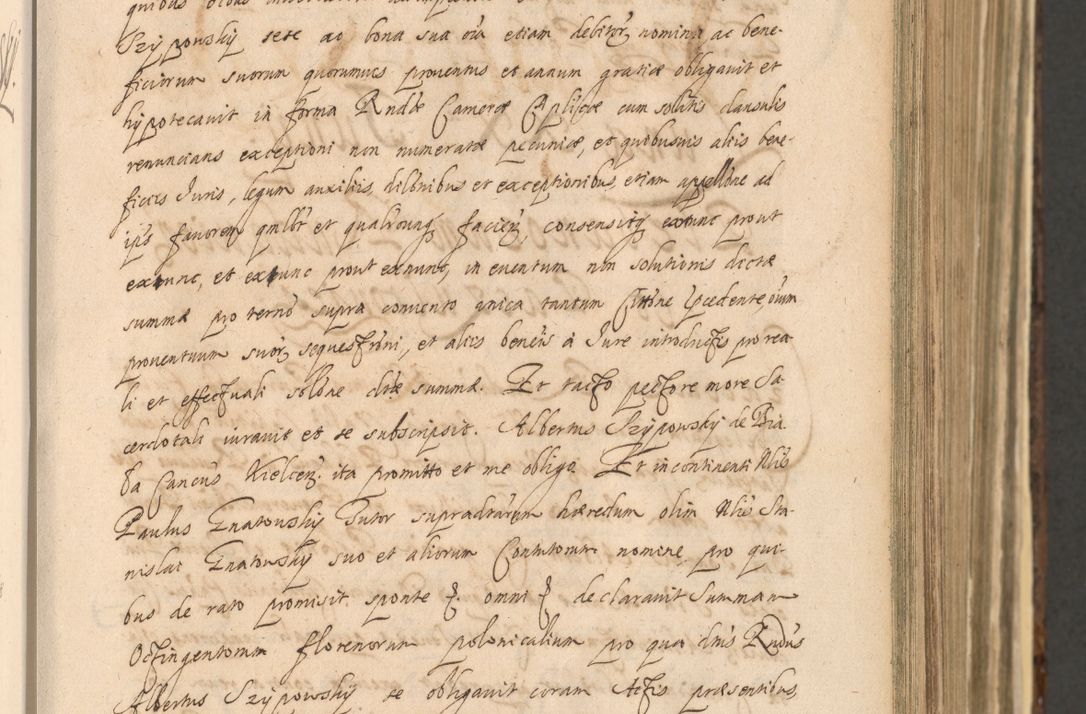 Szÿpowskÿ sese ac bona sua oīa etiam debitor₃ nomina ac bene-
ficiorum suorum quorumvis proventus et annum gratiæ obligavit et
hÿpotecavit in forma Rndæ Cameræ Aplicæ cum solitis clausulis
renuncians exceptioni non numeratæ pecuniæ, et quibusuis aliis bene-
ficiis Iuris, legum auxiliis, dilōnibus et exceptionibus, etiam apellōne ad
ip̄s favorem qmlbt et qualrcunq₃ facien₃, consensitq₃ extunc prout
exnunc, et extunc prout exnunc, in eventum non solutionis dictæ
summæ pro termō supra convento unica tantum Cittōne p̄cedente, oīum
proventuum suor₃ sequestrōni, et aliis beneīs à Iure introductis pro rea-
li et effectuali solōne dctæ summæ. Et tacto pectore more Sa-
cerdotali iuravit et se subscripsit. Albertus Szÿpowskÿ de Bia-
Ła Cancūs Kielcen₃. ita promitto et me obligo Et in continenti Nlis
Paulus Gnatowskÿ Tutor supradrārum hæredum olim Nlis Sta-
nislai Gnatowskÿ suo et aliorum Contutorum nomine, pro qui-
bus de rato promisit, sponte &. omni & declaravit Summam
Octingentorum florenorum polonicalium pro qua dnus Rndus
Albertus Szÿpowskÿ se obligavit coram Actis præsentibus,